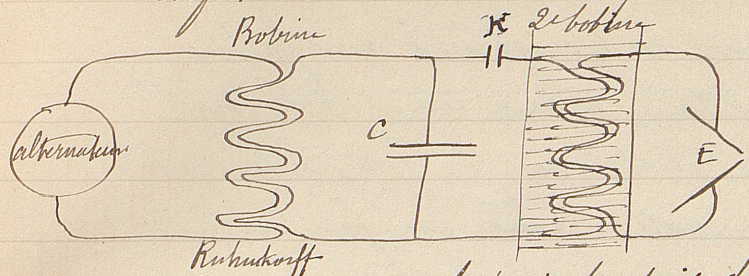 Bobine
K
2e bobine
alternateur
C
E
Ruhmkorff